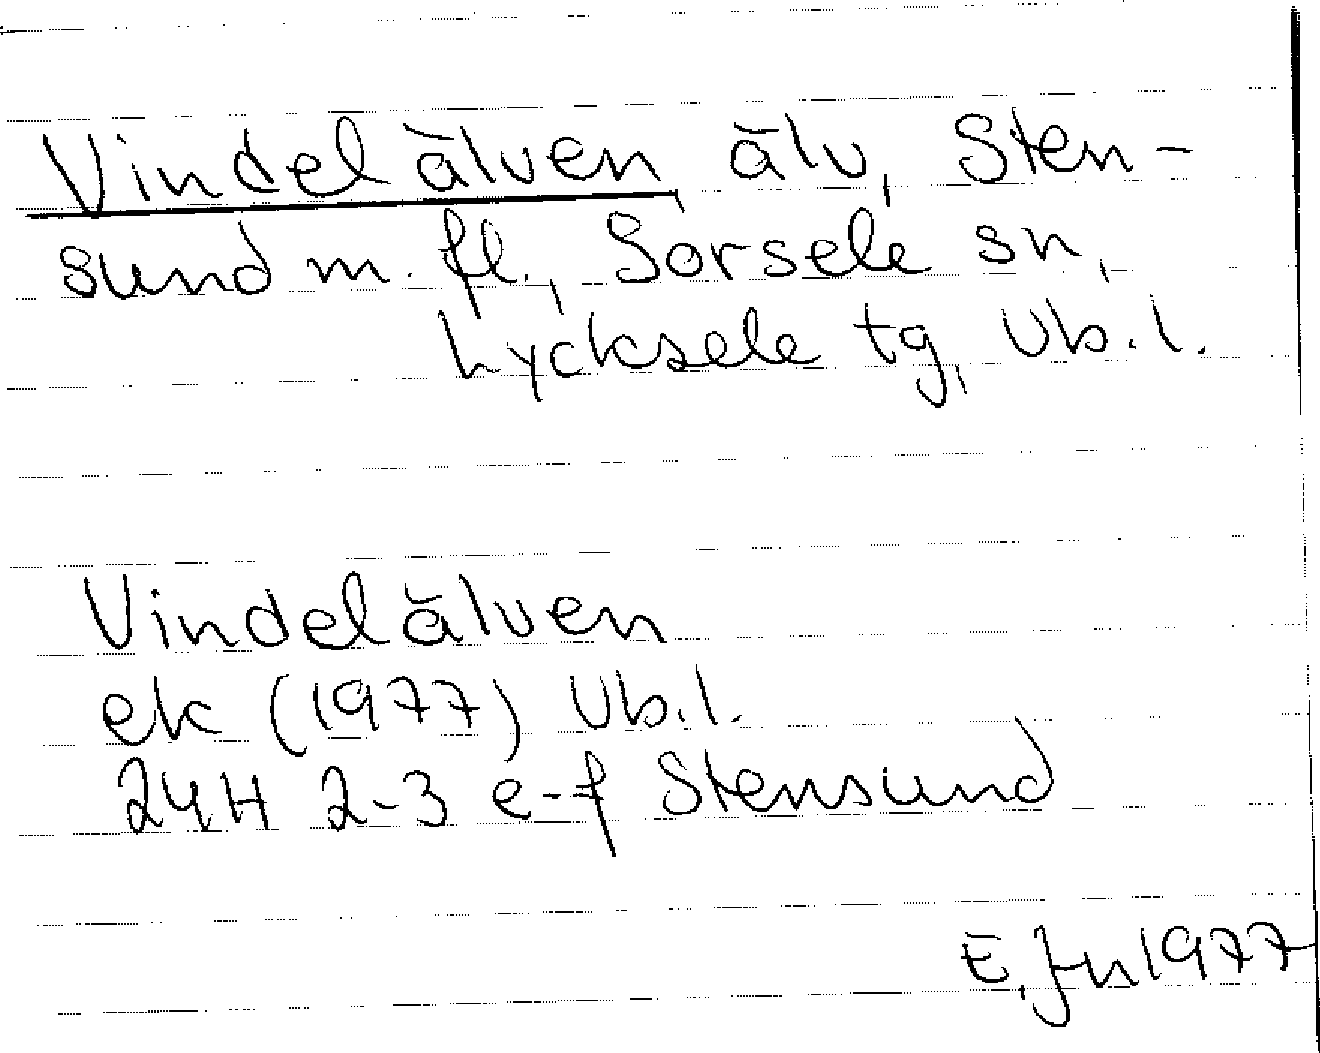 Vindelälven, älv, Sten-
sund m. fl., Sorsele sn,
Lycksele tg, Vb. l.
Vindelälven
ek (1977) Vb. l.
24H 2-3 e-f Stensund
E. 1977